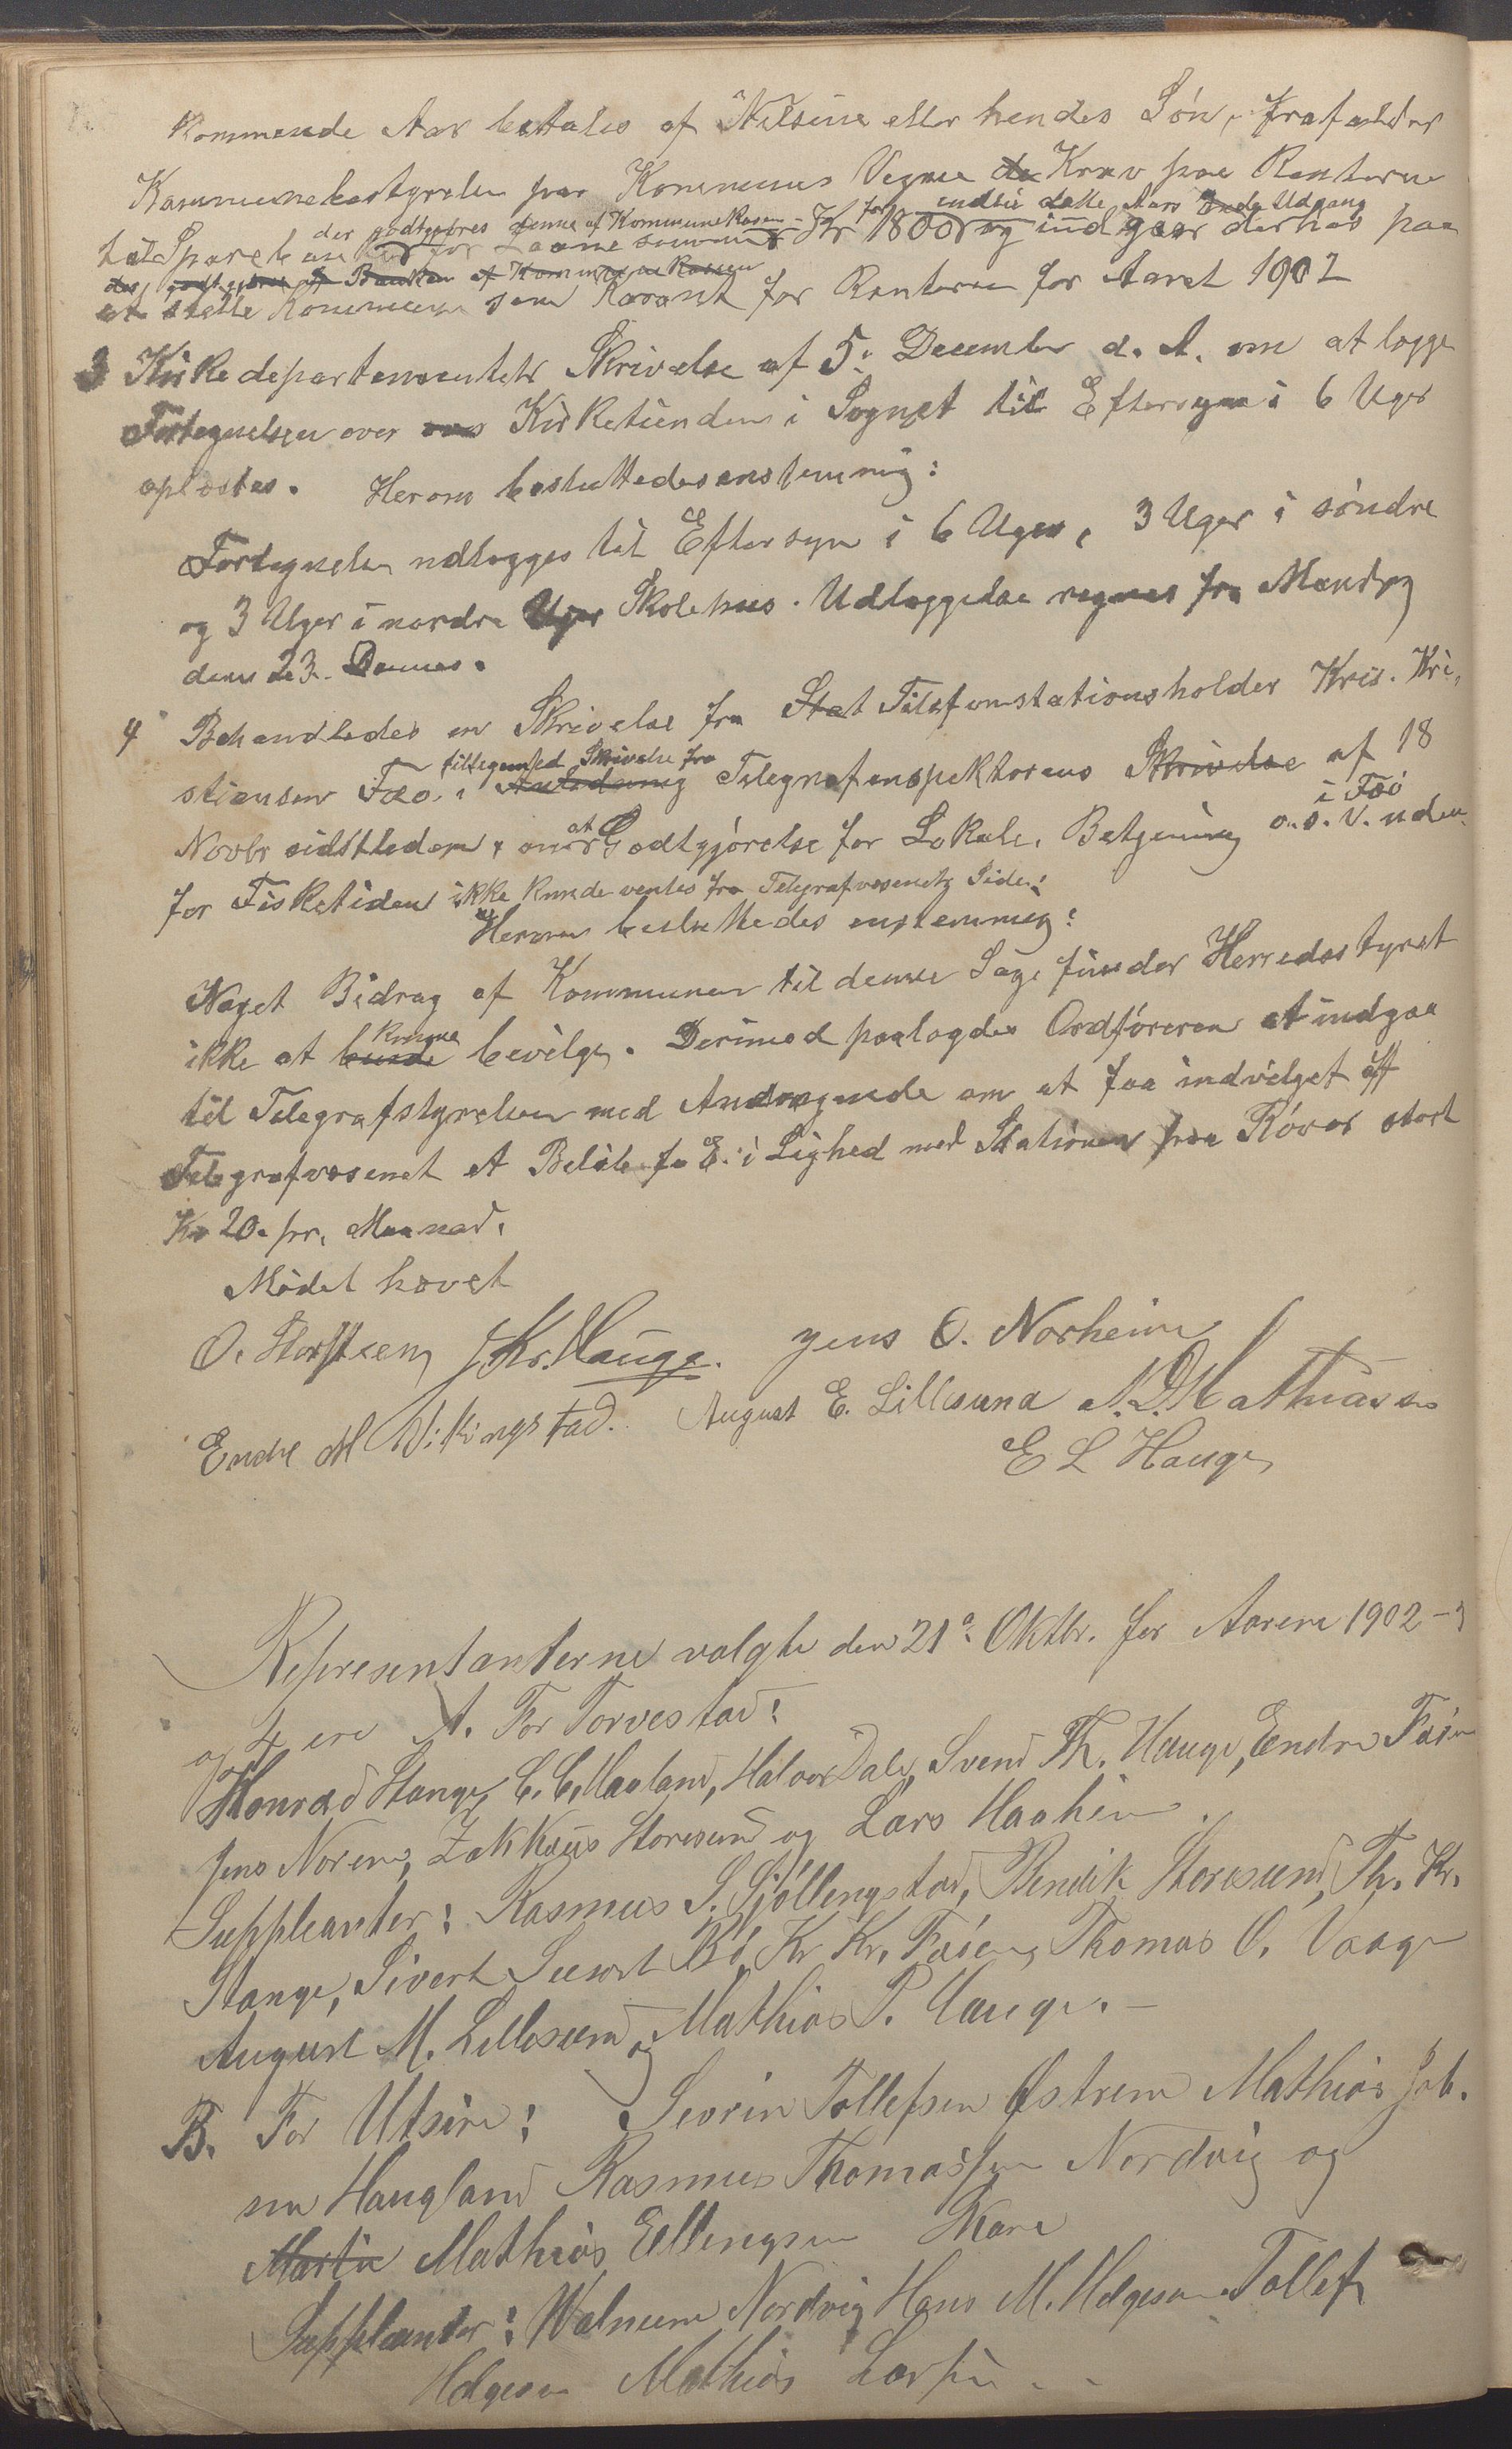 Kommende Aar betales af Nilsine eller hendes Søn, frafalder
Kommunebestyrelsen paa Kommunens Vegne de Krav paa Renterne
indtil dette Aars Udgang
der godtgjøres denne af Kommunekassen
til Sparebanken for Laanesummen Kr 1800 og indgaar derhos paa
af Banken af Kommunekassen
at stille Kommunen som Garant for Renterne for Aaret 1902
3 Kirkedepartementets Skrivelse af 5. December d. A. om at lægge
Fortegnelsen over Kirketienden i Sognet til Eftersyn i 6 Uger
oplæstes. Herom besluttedes enstemmig:
Fortegnelsen udlægges til Eftersyn i 6 Uger, 3 Uger i søndre
og 3 Uger i nordre Uger Skolehus. Udlæggelse regnes fra Mandag
den 23. Dennes.
4 Behandledes en Skrivelse fra Stat Telefonstationsholder Kris. Kri-
stiansen Fæø i
tilligemed Skrivelse fra
Anledning Telegrafinspektørens Skrivelse af 18
i Føø
Novbr sidstleden, om at Godtgjørelse for Lokale, Betjening o.s.v. uden-
for Fisketiden ikke kunde ventes fra Telegrafvæsenets Side.
Herom besluttedes enstemmig:
Noget Bidrag af Kommunen til denne Sag finder Herredsstyret
kunne
ikke at burde bevilge. Derimod paalagdes Ordføreren at indgaa
til Telegrafstyrelsen med Andragende om at faa indvilget af
Telegrafvæsenet et Beløb i Lighed med Stationen paa Røvær stort
Kr 20. pr. Maaned.
Mødet hævet
O. Storsteen J Kr. Hauge. Jens O. Norheim
Endre M Vikingstad. August E. Lillesund N. D. Mathiassen
E L Hauge
Representanterne valgte den 21de Oktbr. for Aarene 1902-3
og 4 ere A. For Torvestad:
Konrad Stange, C. C. Haaland, Halvor Dale, Svend Th. Hauge, Endre Føien
Jens Norem, Zakkæus Storesund og Lars Haaheim.
Suppleanter: Rasmus S. Sjøllengstad, Bendik Storesund, Th. Kr.
Stange, Sivert Bø, Kr Kr. Føien, Thomas O. Vaage
August M. Lillesund og Mathias P. Hauge. -
B. For Utsire: Sevrin Tollefsen Østrem Mathias Job.
sen Haugland Rasmus Thomassen Nordvig og
Martin Mathias Ellingsen Skare
Suppleanter: Walnum Nordvig Hans M. Helgesen Tollef
Helgesen Mathias Larsen - -